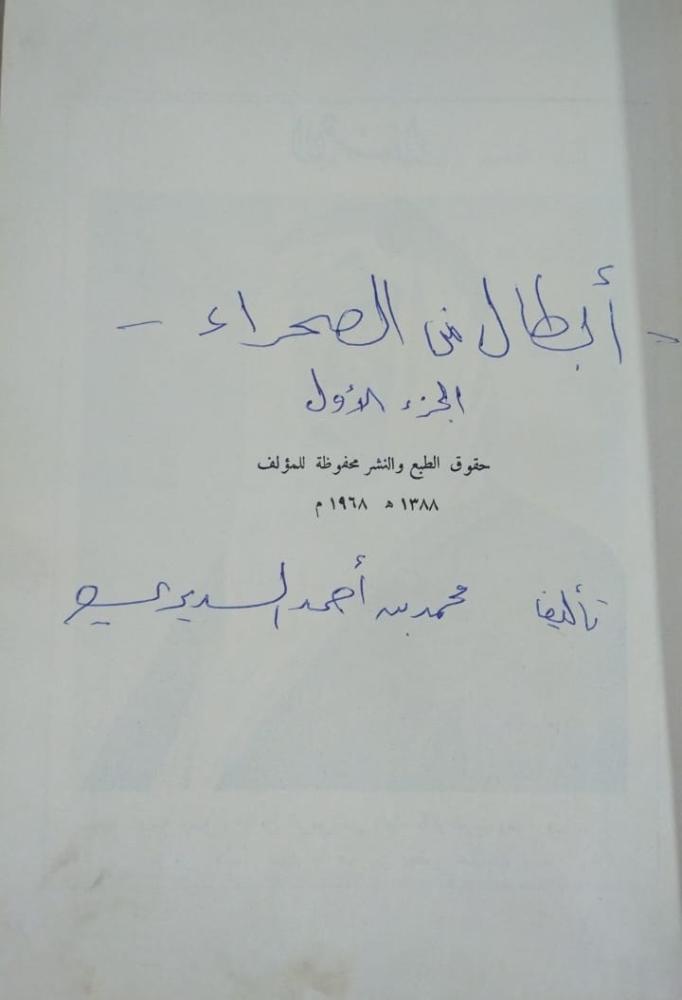 - أبطال من الصحراء -
الجزء الأول
حقوق الطبع والنشر محفوظة للمؤلف
١٣٨٨ ه ١٩٦٨ م
تأليف محمد بن أحمد السديري